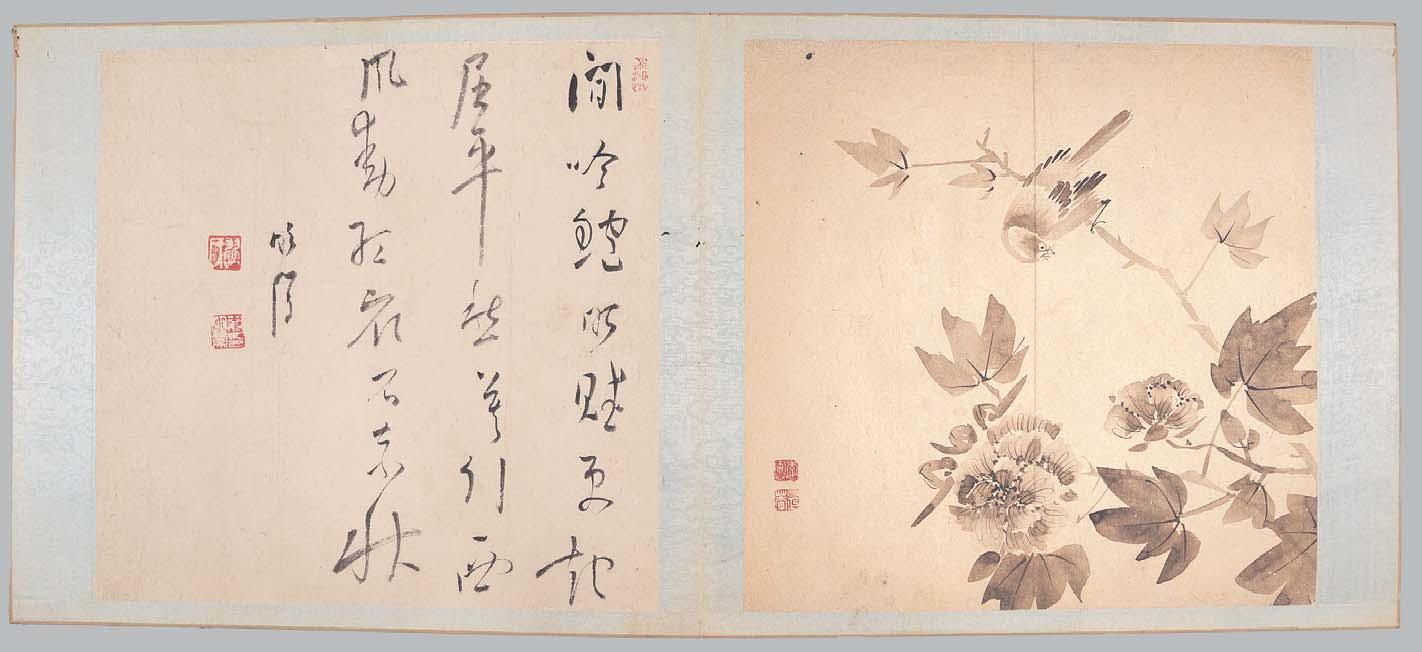 閒吟鮑昭賦更起
屈平愁莫引西
風動紅衣不奈秋